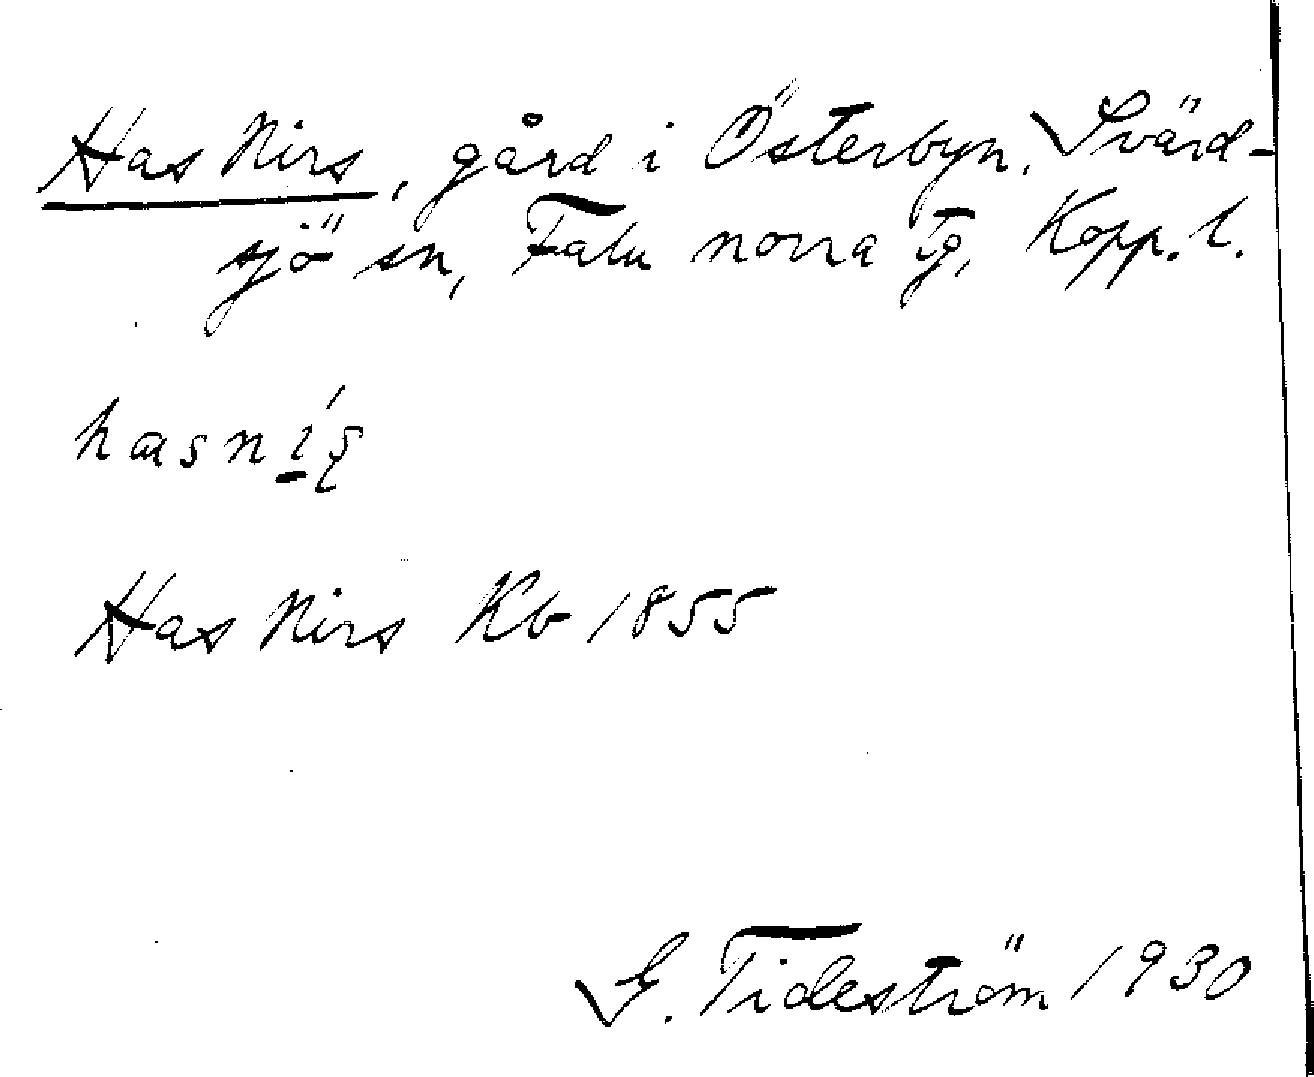 Has Nirs, gård i Österbyn, Svärd-
sjö sn, Falu norra tg, Kopp. l.
hasní̱ʂ
Has Nirs Kb 1855
G. Tideström 1930